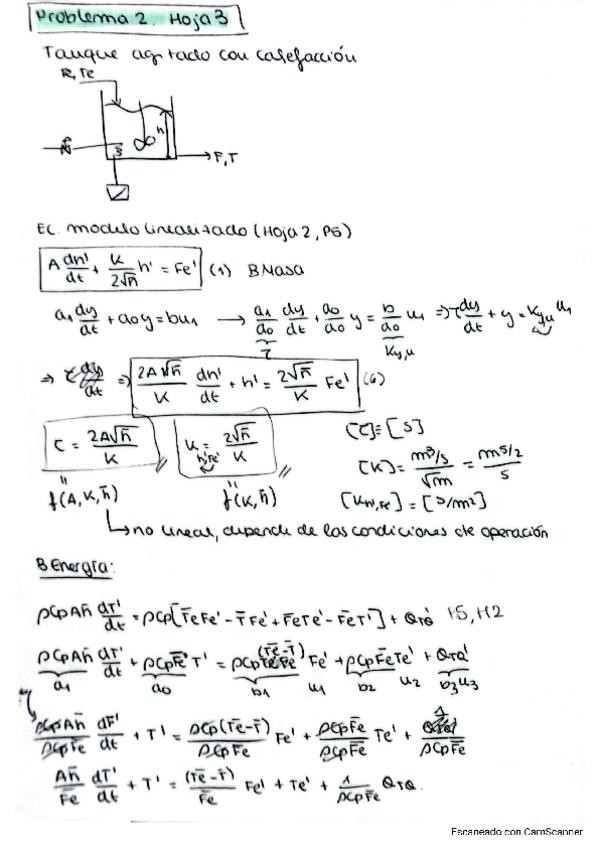 Problema 2. Hoja 3
Tanque agitado con calefacción
Fe, Te
h
F, T
Ec. modelo linealizado (Hoja 2, P5)
A dh'/dt + K/(2√h̄) h' = Fe' (1) B Masa
a₁ dy/dt + a₀y = bu₁ → a₁/a₀ dy/dt + a₀/a₀ y = b/a₀ u₁ ⇒ τ dy/dt + y = K_y,u u₁
τ K_y,u
⇒ τ dy/dt ⇒ 2A√h̄/K dh'/dt + h' = 2√h̄/K Fe' (6)
τ = 2A√h̄/K // K_h',Fe' = 2√h̄/K // [τ] = [s]
[K] = (m³/s)/√m = m^5/2/s
f(A, K, h̄) f(K, h̄) [K_h',Fe'] = [s/m²]
↳ no lineal, depende de las condiciones de operación
B Energía:
ρCpAh̄ dT'/dt = ρCp[T̄eFe' - T̄Fe' + F̄eTe' - F̄eT'] + Q̇ro' H5, H2
ρCpAh̄ dT'/dt + ρCpF̄e T' = ρCp(T̄e-T̄) Fe' + ρCpF̄eTe' + Q̇ro'
a₁ a₀ b₁ u₁ b₂ u₂ b₃u₃
ρCpAh̄/ρCpF̄e dT'/dt + T' = ρCp(T̄e-T̄)/ρCpF̄e Fe' + ρCpF̄e/ρCpF̄e Te' + 1/ρCpF̄e
Ah̄/F̄e dT'/dt + T' = (T̄e-T̄)/F̄e Fe' + Te' + 1/ρCpF̄e Q̇ro.
Escaneado con CamScanner